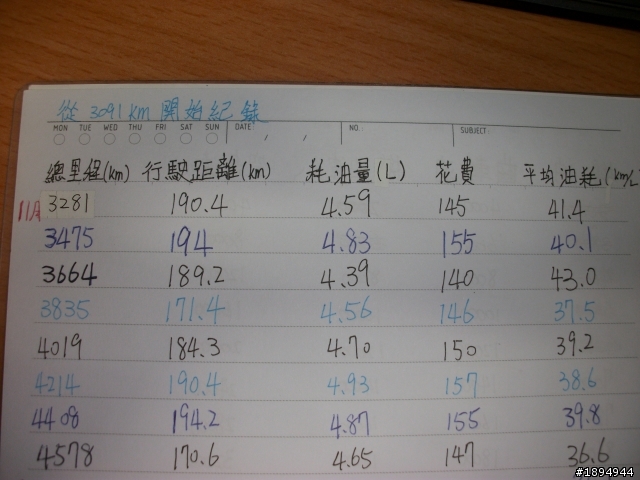 從 3091 km 開始紀錄
MON TUE WED THU FRI SAT SUN DATE: / / NO. SUBJECT:
總里程(km) 行駛距離(km) 耗油量(L) 花費 平均油耗(km/L
11月 3281 190.4 4.59 145 41.4
3475 194 4.83 155 40.1
3664 189.2 4.39 140 43.0
3835 171.4 4.56 146 37.5
4019 184.3 4.70 150 39.2
4214 190.4 4.93 157 38.6
4408 194.2 4.87 155 39.8
4578 170.6 4.65 147 36.6
#1894944